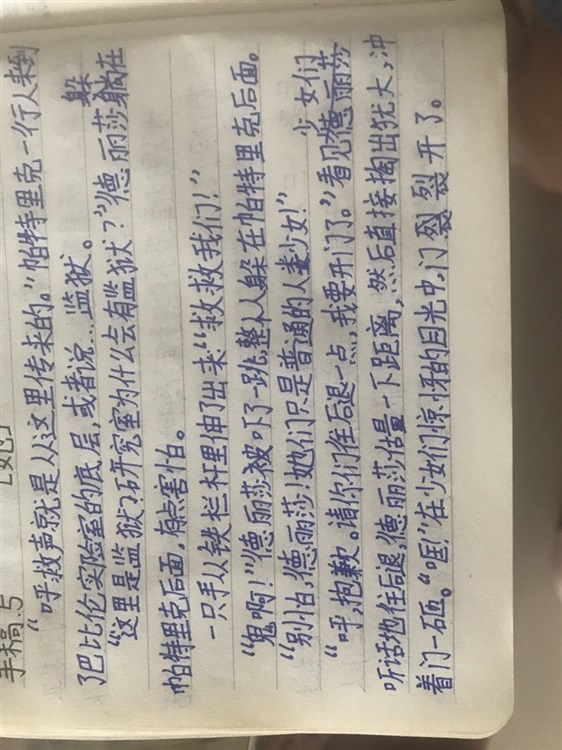 手稿.5
"呼救声就是从这里传来的。"帕特里克一行人来到
了巴比伦实验室的底层,或者说…监狱。
"这里是监狱?研究室为什么会有监狱?"德丽莎躲在
帕特里克后面,有点害怕。
一只手从铁栏杆里伸了出来"救救我们!"
"鬼啊!"德丽莎被吓了一跳,整个人躲在帕特里克后面。
"别怕,德丽莎!她们只是普通的人类少女!"
"呼,抱歉。请你们往后退一点,我要开门了。"看见少女们
听话地往后退,德丽莎估量一下距离,然后直接掏出犹大,冲
着门一砸。"哐!"在少女们惊讶的目光中,门裂开了。